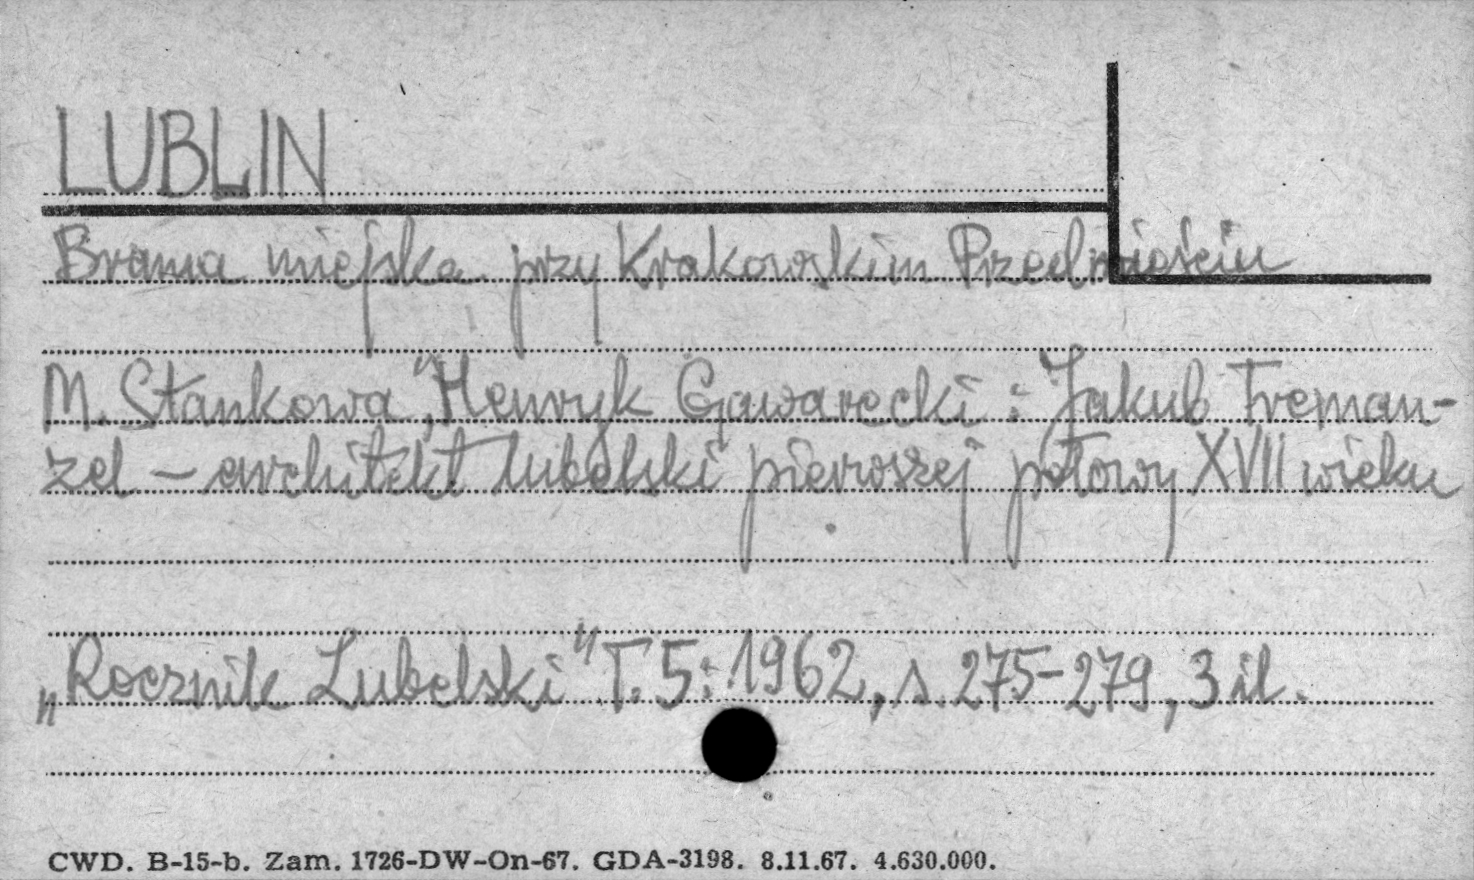 LUBLIN
Brama miejska przy Krakowskim Przedmieściu
M. Stankowa, "Henryk Gawarecki: Jakub Treman-
zel - architekt lubelski pierwszej połowy XVII wieku
„Rocznik Lubelski" T. 5: 1962, s. 275-279, 3 il.
CWD. B-15-b. Zam. 1726-DW-On-67. GDA-3198. 8.11.67. 4.630.000.